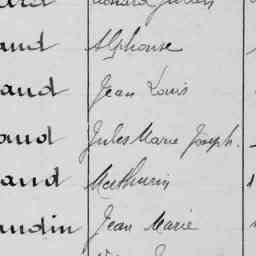 and Alphonse
aud Jean Louis
aud Jules Marie Joseph.
aud Mathurin
audin Jean Marie